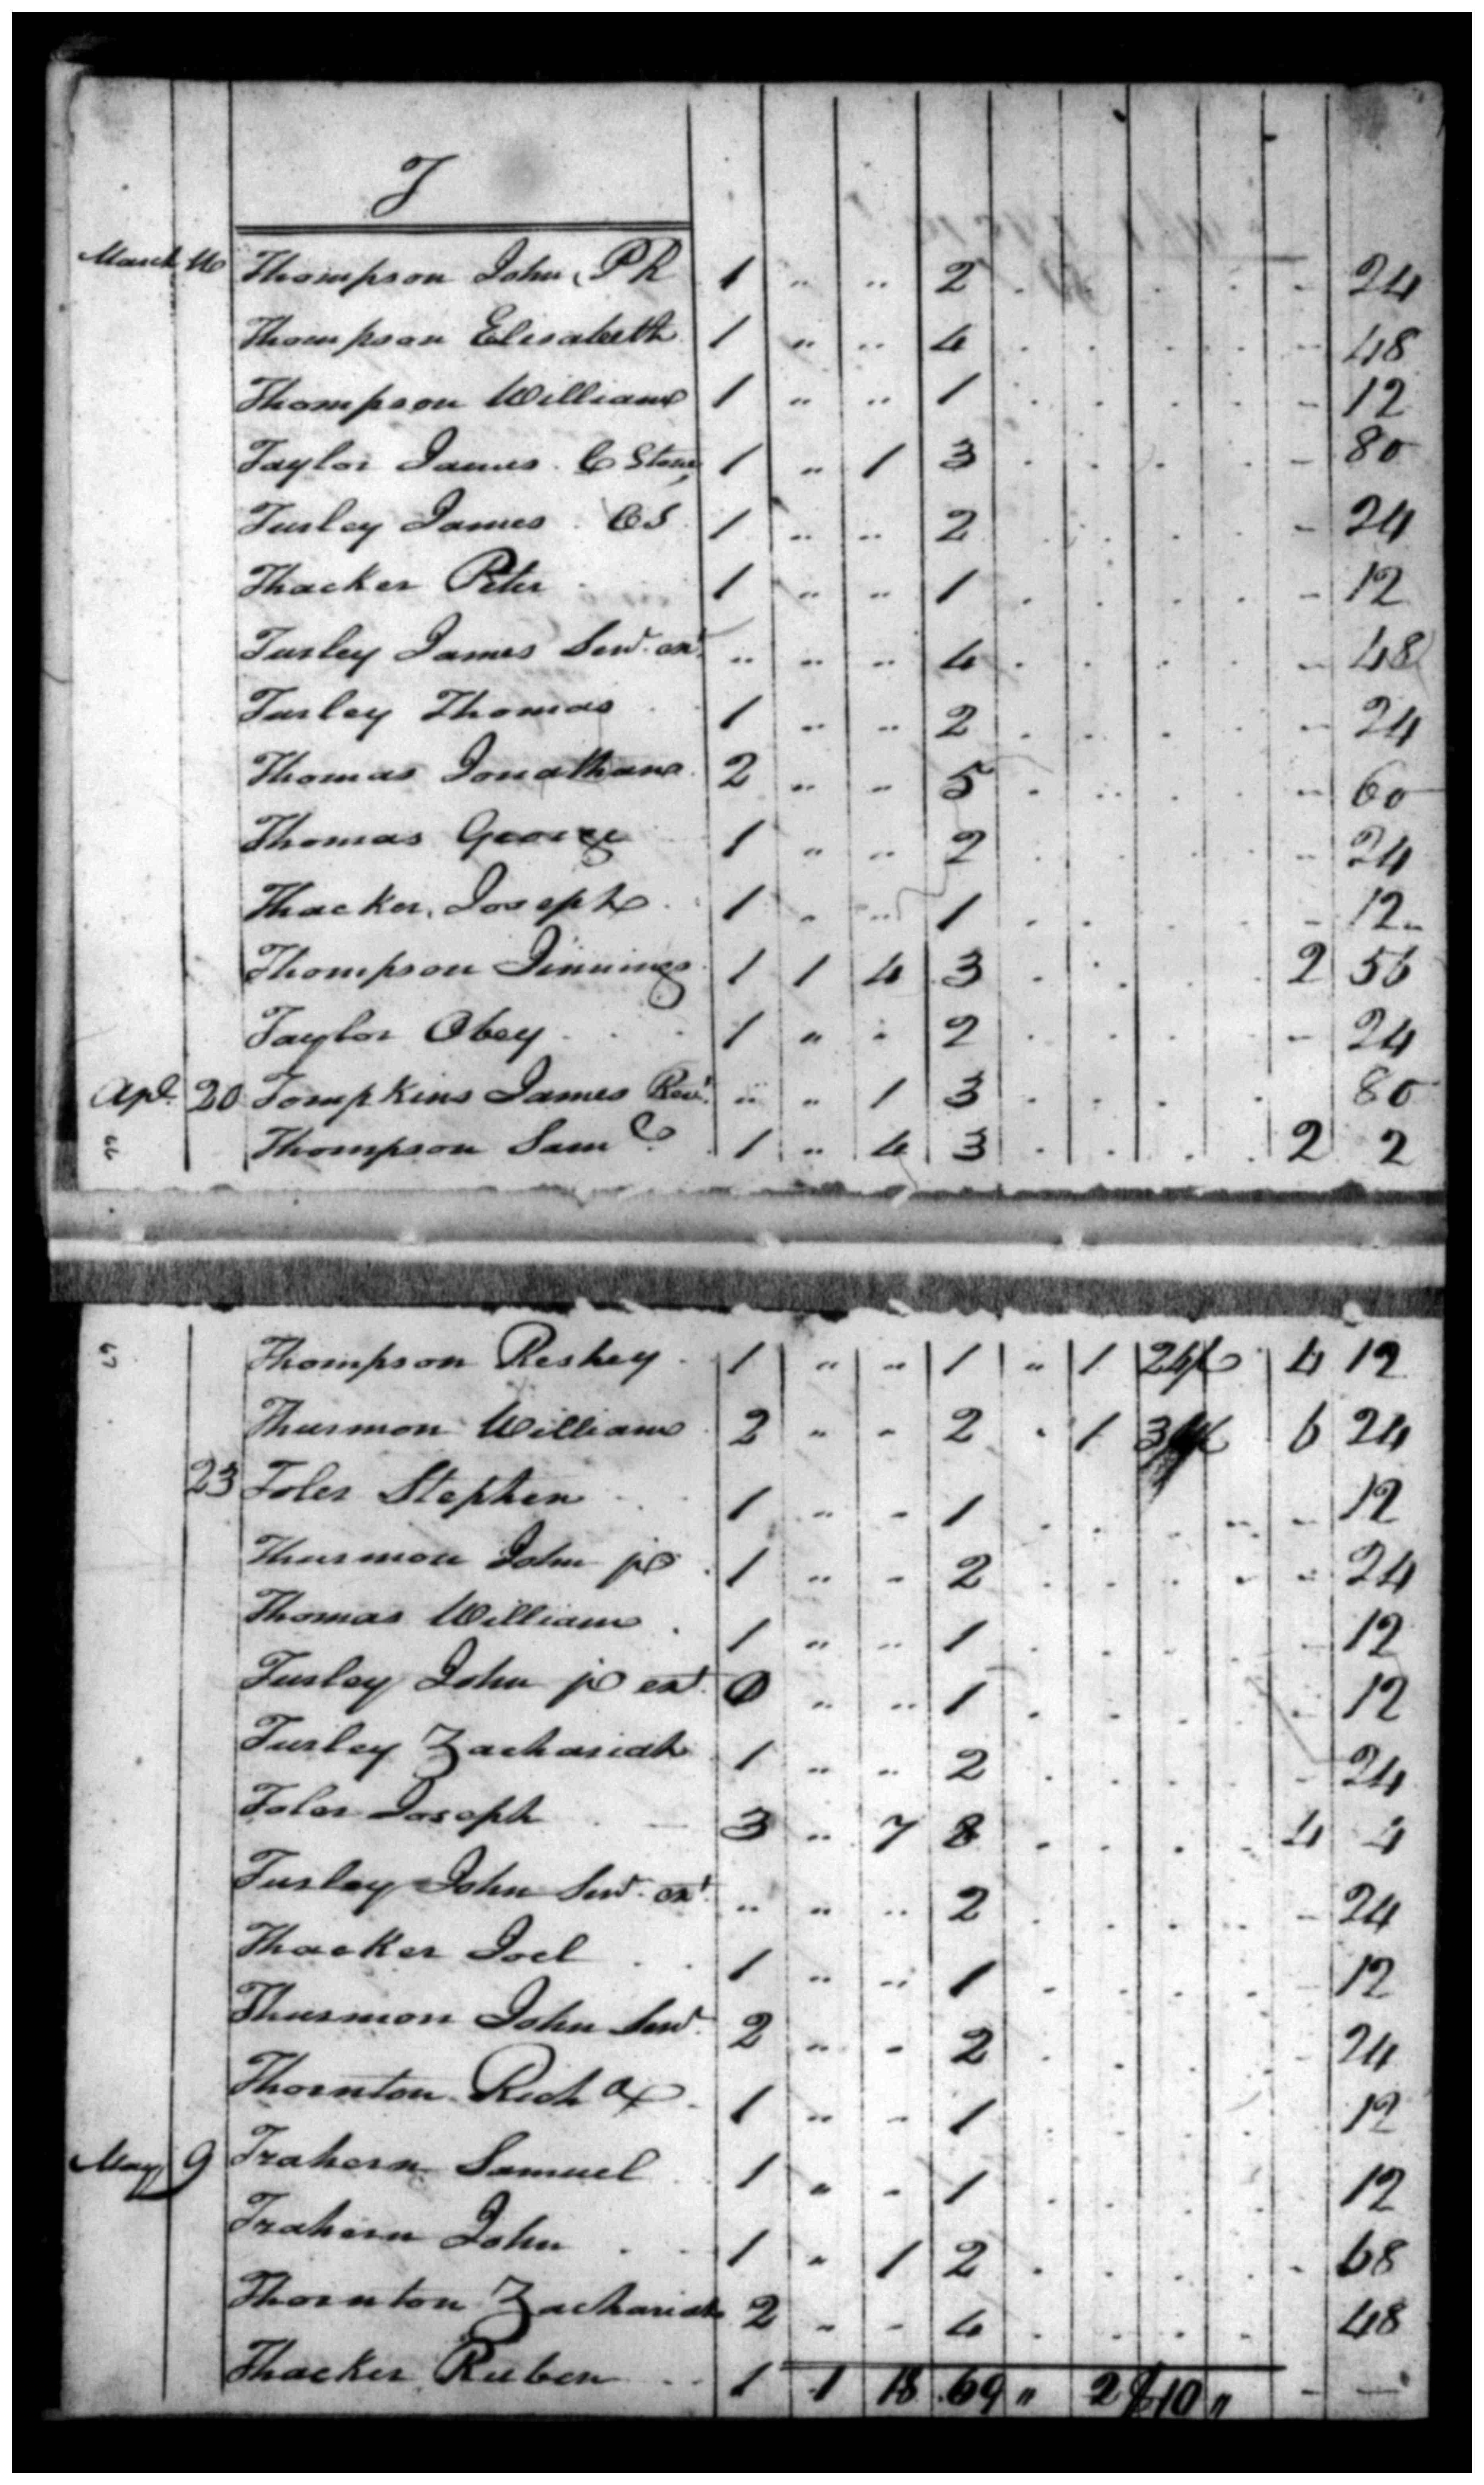 T
March 16 Thompson John, P R 1 " " 2 . . . . - 24
Thompson Elisabeth 1 " " 4 . . . . - 48
Thompson William 1 " " 1 . . . . - 12
Taylor James C Stone 1 " 1 3 . . . . - 80
Turley James CS 1 " " 2 . . . . - 24
Thacker Peter 1 " " 1 . . . . - 12
Turley James Senr. ext. " " " 4 . . . . - 48
Turley Thomas 1 " " 2 . . . . - 24
Thomas Jonathan 2 " " 5 . . . . - 60
Thomas George 1 " " 2 . . . . - 24
Thacker, Joseph 1 " " 1 . . . . - 12
Thompson Jinnings 1 1 4 3 . . . . 2 56
Taylor Obey 1 " " 2 . . . . - 24
Apl. 20 Tompkins James Revd. " " 1 3 . . . . 80
66 Thompson Saml. 1 " 4 3 . . . . 2 2
67 Thompson Reskey 1 " " 1 " 1 4 12
Thurmon William 2 " " 2 . 1 6 24
23 Toler Stephen 1 " " 1 . . . . - 12
Thurmon John jr 1 " " 2 . . . . - 24
Thomas William 1 " " 1 . . . . - 12
Turley John jr ext. 0 " " 1 . . . . - 12
Turley Zachariah 1 " " 2 . . . . - 24
Toler Joseph 3 " 7 8 . . . . 4 4
Turley John Senr. ext. " " " 2 . . . . - 24
Thacker Joel 1 " " 1 . . . . - 12
Thurmon John Senr. 2 " " 2 . . . . - 24
Thornton Richd. 1 " " 1 . . . . - 12
May 9 Trahern Samuel 1 " " 1 . . . . 12
Trahern John 1 " 1 2 . . . . - 68
Thornton Zachariah 2 " " 4 . . . . 48
Thacker Reuben 1 1 18 69 " 2 $10 " - -